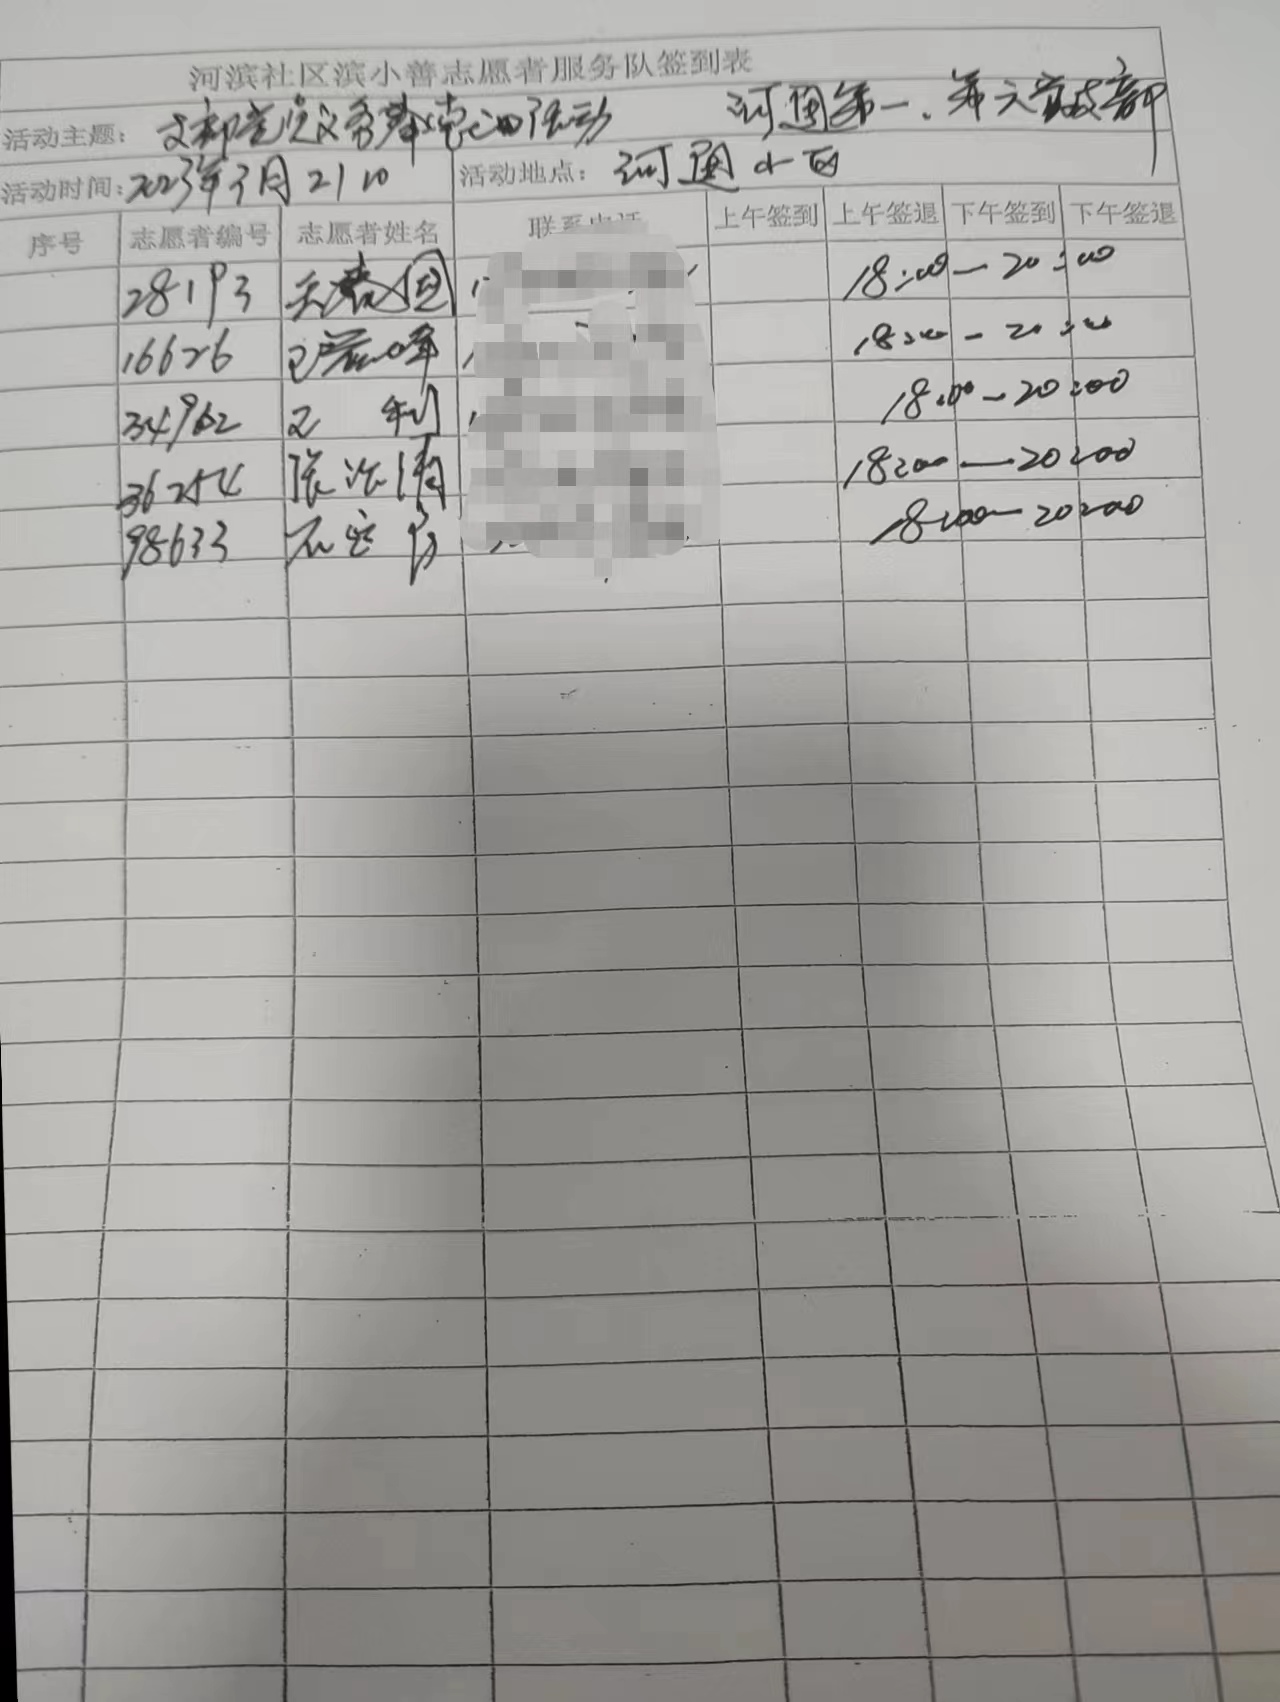 河滨社区滨小善志愿者服务队签到表
活动主题: 支部党员义务 活动 河通第一、第六党支部
活动时间: 2023年3月21日 活动地点: 河通小区
序号 志愿者编号 志愿者姓名 联系电话 上午签到 上午签退 下午签到 下午签退
28193 18:00—20:00
16626 18:00—20:00
34962 王 利 18:00—20:00
36254 张 清 18:00—20:00
98633 18:00—20:00